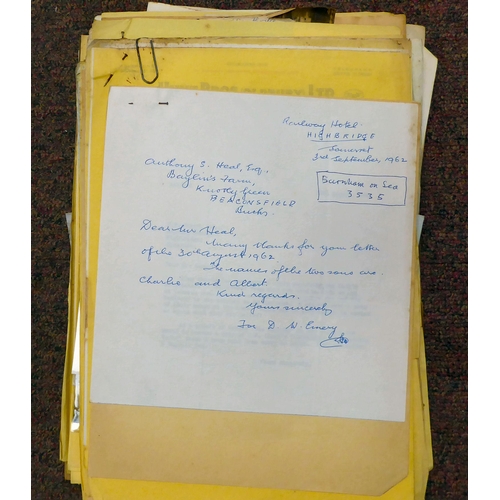 Railway Hotel
HIGHBRIDGE
Somerset
3rd September, 1962
Anthony S. Heal, Esq.,
Baylin's Farm,
Knotty Green
BEACONSFIELD
Bucks.
Burnham on Sea
3535
Dear Mr Heal,
Many thanks for your letter
of the 30th August, 1962
The names of the two sons are
Charlie and Albert.
Kind regards.
Yours sincerely
For D W Emery